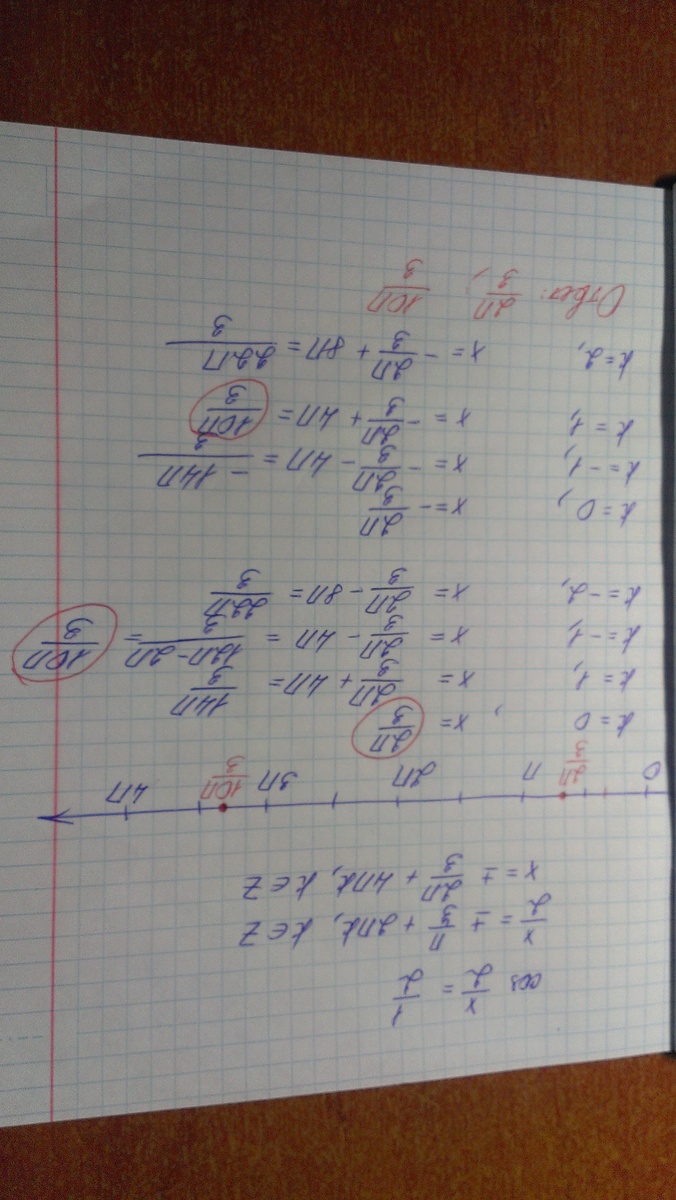 cos x/2 = 1/2
x/2 = ∓ π/3 + 2πk, k∈Z
x = ∓ 2π/3 + 4πk, k∈Z
0 2π/3 π 2π 3π 10π/3 4π
k=0, x= 2π/3
k=1, x= 2π/3 + 4π = 14π/3
k=-1, x= 2π/3 - 4π = 12π-2π/3 = 10π/3
k=-2, x= 2π/3 - 8π = 22π/3
k=0, x=- 2π/3
k=-1, x= - 2π/3 - 4π = - 14π/3
k=1, x= - 2π/3 + 4π = 10π/3
k=2, x= - 2π/3 + 8π = 22π/3
Ответ: 2π/3, 10π/3